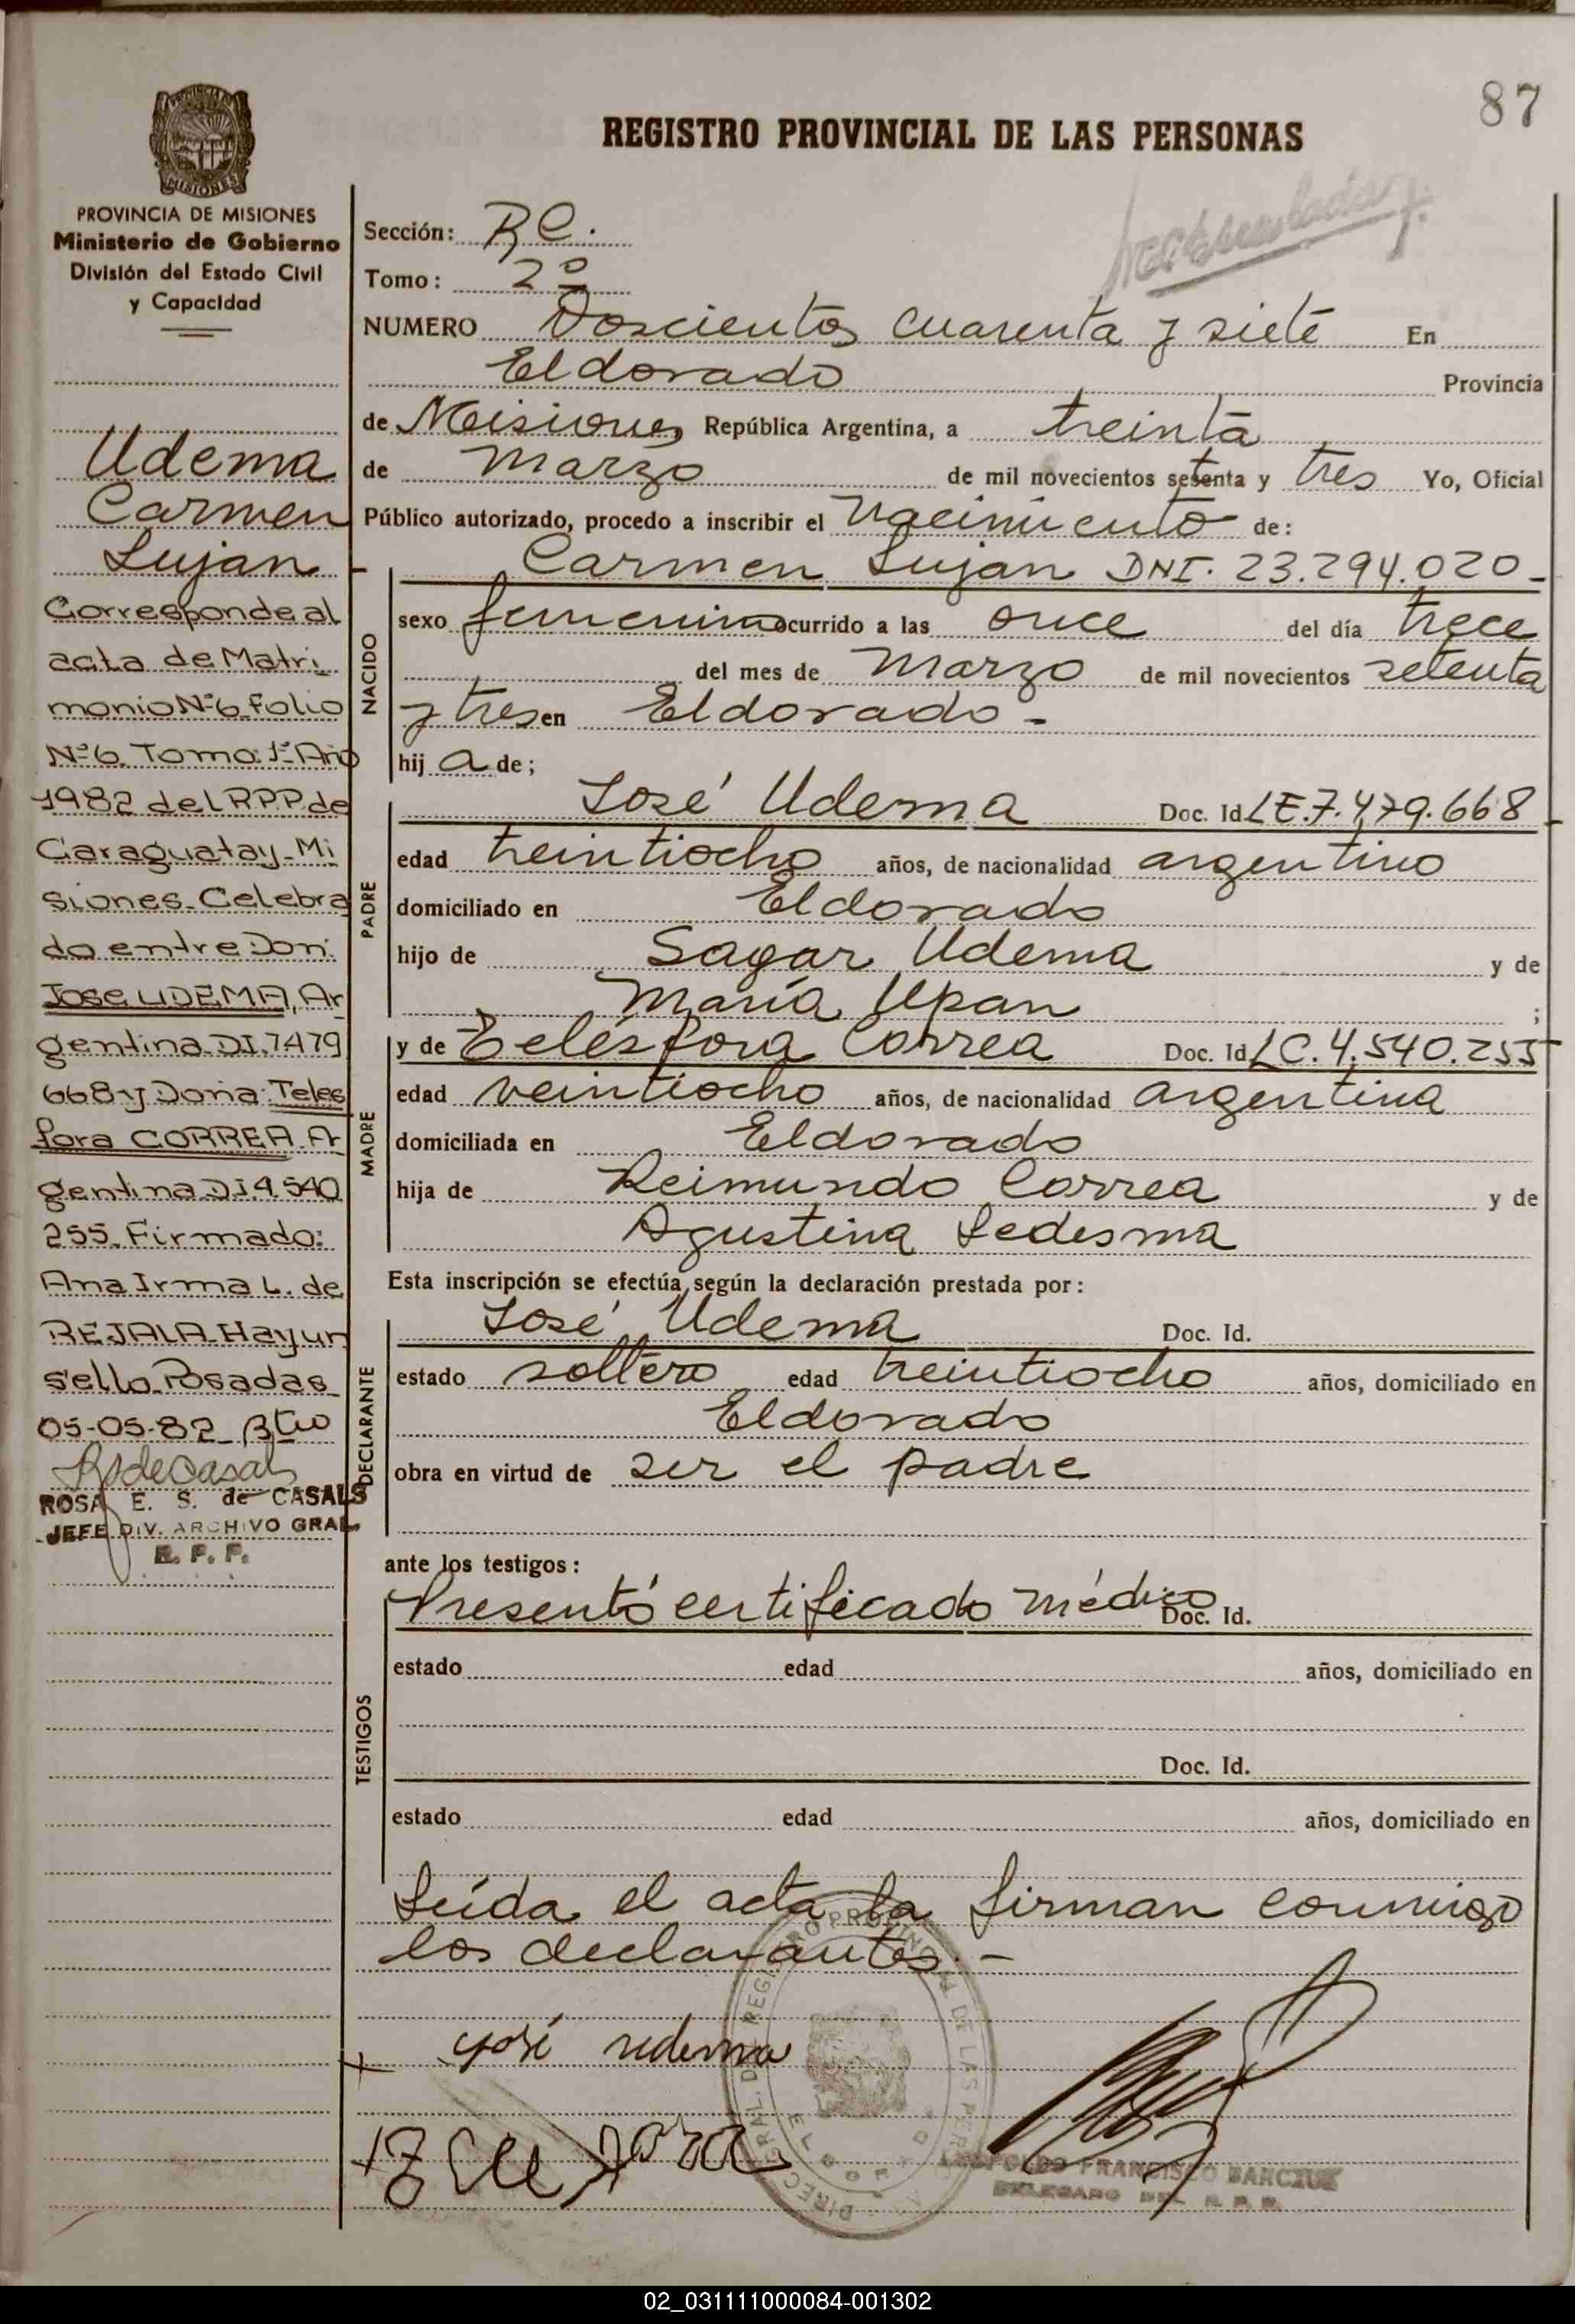 87
REGISTRO PROVINCIAL DE LAS PERSONAS
MISIONES
PROVINCIA DE MISIONES
Ministerio de Gobierno
División del Estado Civil
y Capacidad
Udema
Carmen
Lujan
Corresponde al
acta de Matri
monio Nº 6 Folio
Nº 6. Tomo: 1º Año
1982 del R.P.P. de
Caraguatay - Mi
siones. Celebra
do entre Don:
Jose UDEMA, Ar
gentina D.I. 7479
668 y Doña: Teles
fora CORREA. Ar
gentina D.I. 4.540
255. Firmado:
Ana Irma L. de
REJALA Hay un
sello. Posadas
05-05-82
ROSA E. S. de CASALS
JEFE DIV. ARCHIVO GRAL.
R. P. P.
Sección: R C.
Tomo: 2º
NUMERO Doscientos cuarenta y siete En
Eldorado Provincia
de Misiones República Argentina, a treinta
de marzo de mil novecientos setenta y tres Yo, Oficial
Público autorizado, procedo a inscribir el nacimiento de:
NACIDO
Carmen Lujan DNI. 23.294.020 -
sexo femenino ocurrido a las once del día trece
del mes de marzo de mil novecientos setenta
y tres en Eldorado -
hij a de;
PADRE
José Udema Doc. Id. LE. 7.479.668
edad treintiocho años, de nacionalidad argentino
domiciliado en Eldorado
hijo de Sagar Udema y de
María Upan ;
MADRE
y de Telésfora Correa Doc. Id. LC. 4.540.255
edad veintiocho años, de nacionalidad argentina
domiciliada en Eldorado
hija de Reimundo Correa y de
Agustina Ledesma
Esta inscripción se efectúa, según la declaración prestada por:
DECLARANTE
José Udema Doc. Id.
estado soltero edad treintiocho años, domiciliado en
Eldorado
obra en virtud de ser el padre
ante los testigos:
TESTIGOS
Presentó certificado médico Doc. Id.
estado edad años, domiciliado en
Doc. Id.
estado edad años, domiciliado en
Leída el acta la firman conmigo
los declarantes. -
José udema
FRANCISCO
DELEGADO DEL R. P. P.
02_031111000084-001302